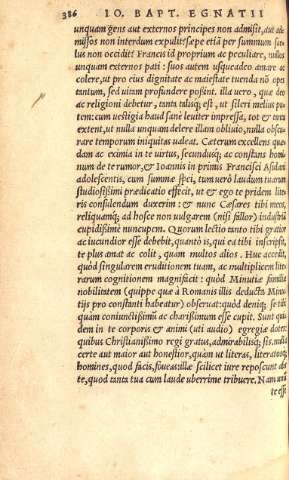 386 IO. BAPT. EGNATII
unquam gens aut externos principes non admisit, aut ad-
missos non interdum expulit: sæpe etiã per summum sce-
lus non occidit: Francis id proprium ac peculiare, nullos
unquam externos pati: suos autem usque adeo amare ac
colere, ut pro eius dignitate ac maiestate tuenda nõ opes
tantum, sed uitam profundere possint. illa uero, quæ deo
ac religioni debetur, tanta talisq; est, ut sileri melius pu-
tem: cum uestigia haud sane leuiter impressa, tot & tanta
extent, ut nulla unquam delere illam obliuio, nulla obscu-
rare temporum iniquitas ualeat. Cæterum excellens quæ-
dam ac eximia in te uirtus, secundusq; ac constans homi-
num de te rumor, & Ioannis in primis Francisci Asulani
adolescentis, cum summæ spei, tum uerò laudum tuarum
studiosissimi prædicatio effecit, ut & ego te pridem lite-
ris consalutandum duxerim: & nunc Cæsares tibi meos,
reliquamq; ad hosce non uulgarem (nisi fallor) industriã
cupidissime nuncupem. Quorum lectio tanto tibi gratior
ac iucundior esse debebit, quanto is, qui ea tibi inscripsit,
te plus amat ac colit, quam multos alios. Huc accedit,
quòd singularem eruditionem tuam, ac multiplicem lite-
rarum cognitionem magnificat: quòd Minutiæ familiæ
nobilitatem (quippe que à Romanis illis deducta Minu-
tijs pro constanti habeatur) obseruat: quòd deniq; se tibi
quàm coniunctissimũ ac charissimum esse cupit. Sunt qui-
dem in te corporis & animi (uti audio) egregiæ dotes:
quibus Christianissimo regi gratus, admirabilisq; sis. nulla
certe aut maior aut honestior, quàm ut literas, literatosq;
homines, quod facis, foueas: illæ scilicet iure reposcunt abs
te, quod tanta tua cum laude uberrime tribuere. Nam uni
te esse